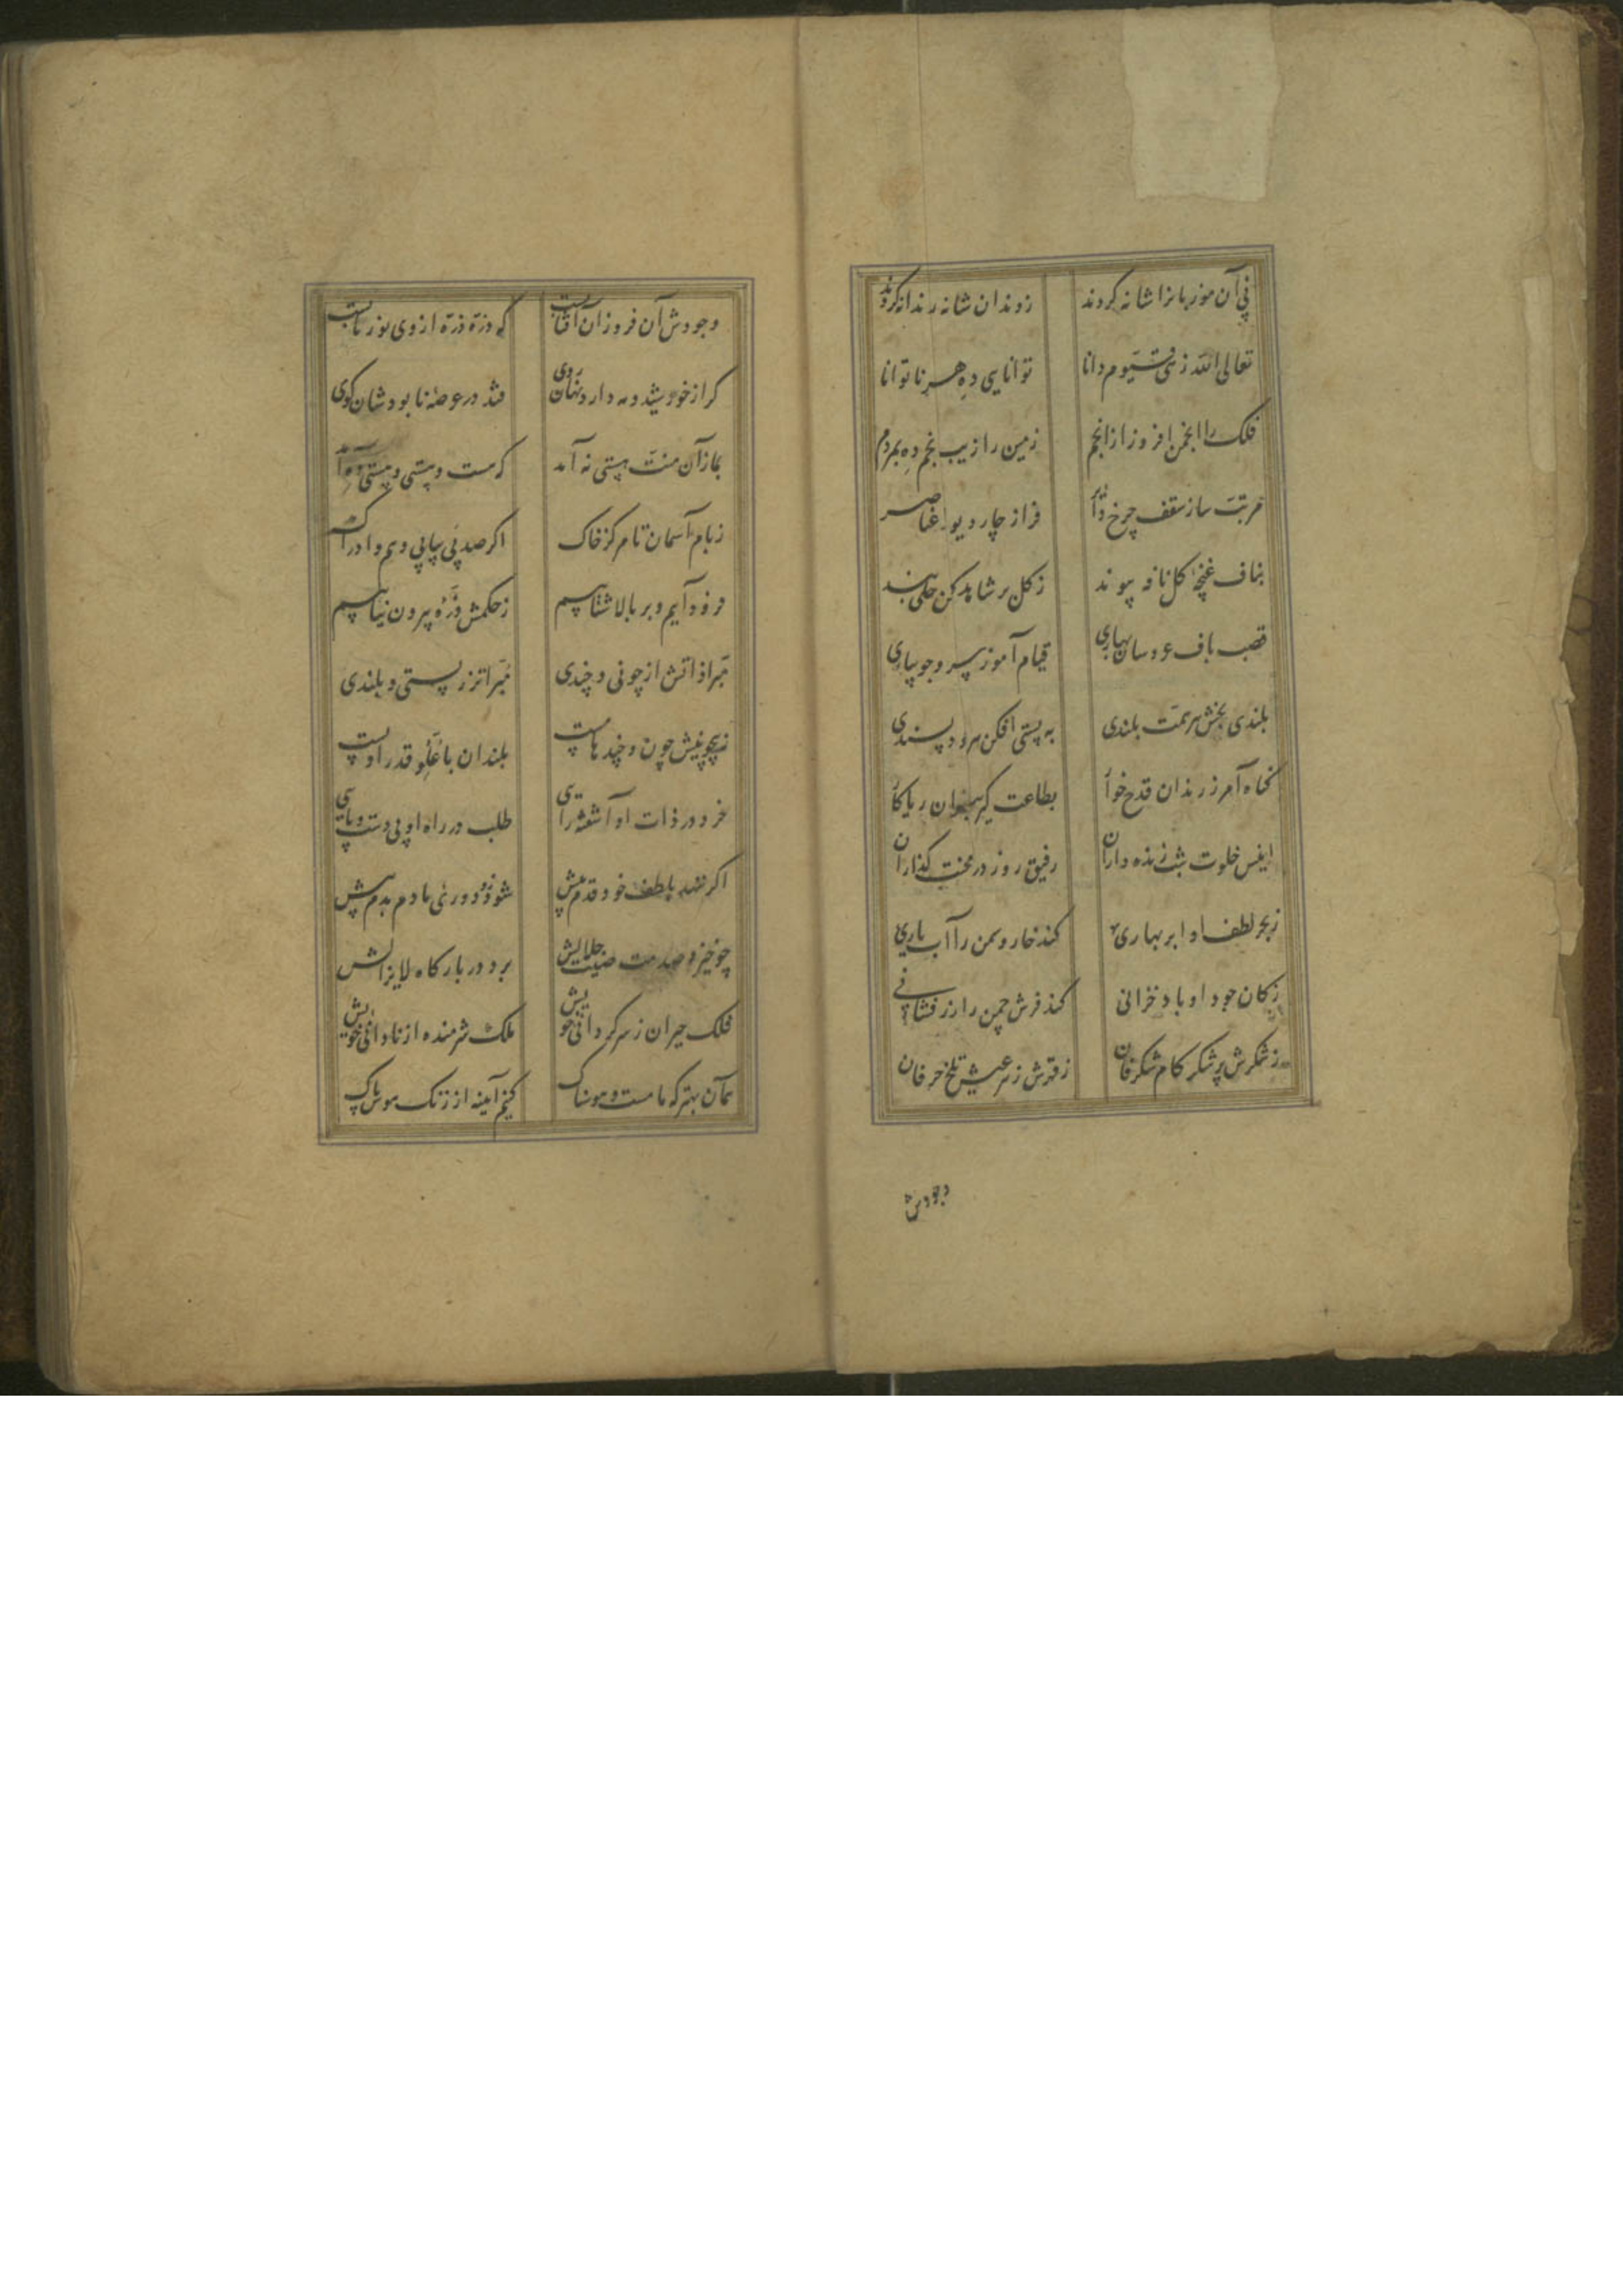 پی آن موز بانرا شانه کردند	ز دندان شانه ر ندانه کردند
تعالی الله زهی قیوم دانا	توانایی ده هر ناتوانا
فلک را انجمن افروز از انجم	زمین را زیب انجم ده بمردم
مرتب ساز سقف چرخ دوار	فراز چار دیوار عناصر
بناف غنچه کل نافه پیوند	ز کل بر شاهد کلبن حلی بند
قصب باف عروسان بهاری	قیام آموز سرو جویباری
بلندی بخش هر همت بلندی	به پستی افکن هر خود پسندی
کناه آمرز رندان قدح خوار	بطاعت کیر پیران ریاکار
انیس خلوت شب زنده داران	رفیق روز در محنت کذاران
ز بحر لطف او ابر بهاری	کند خار و سمن را آب یاری
ز کان جود او باد خزانی	کند فرش چمن را زر فشانی
ز شکرش پر شکر کام شکرفان	ز قهرش زهر عیش تلخ حرفان
وجودش
وجودش آن فروزان آفتابست	که ذره ذره از وی نور یابست
کر از خورشید و مه دارد نهان روی	فتد در عرصه نابودشان کوی
بما ز آن منت هستی نه آمد	که هست و هستی و هستی ده آمد
ز بام آسمان تا مرکز خاک	اکر صد پی بپای وهم و ادراک
فرود آییم و بر بالا شتابیم	ز حکمش ذره بیرون نیابیم
مبرا ذاتش از چونی و چندی	مبراتر ز پستی و بلندی
ز بیچونیش چون و چند ها پست	بلندان با علو قدر او پست
خرد در ذات او آشفته رایی	طلب در راه او بی دست و پایی
اکر ننهد بلطف خود قدم پیش	شود دوری ما دم بدم بیش
چو خیزد صدمت صیت جلالش	برد در بارکاه لایزالش
فلک حیران ز سرکردانی خویش	ملک شرمنده از نادانی خویش
همان بهتر که ما مست و هوسناک	کنیم آیینه از زنک هوس پاک